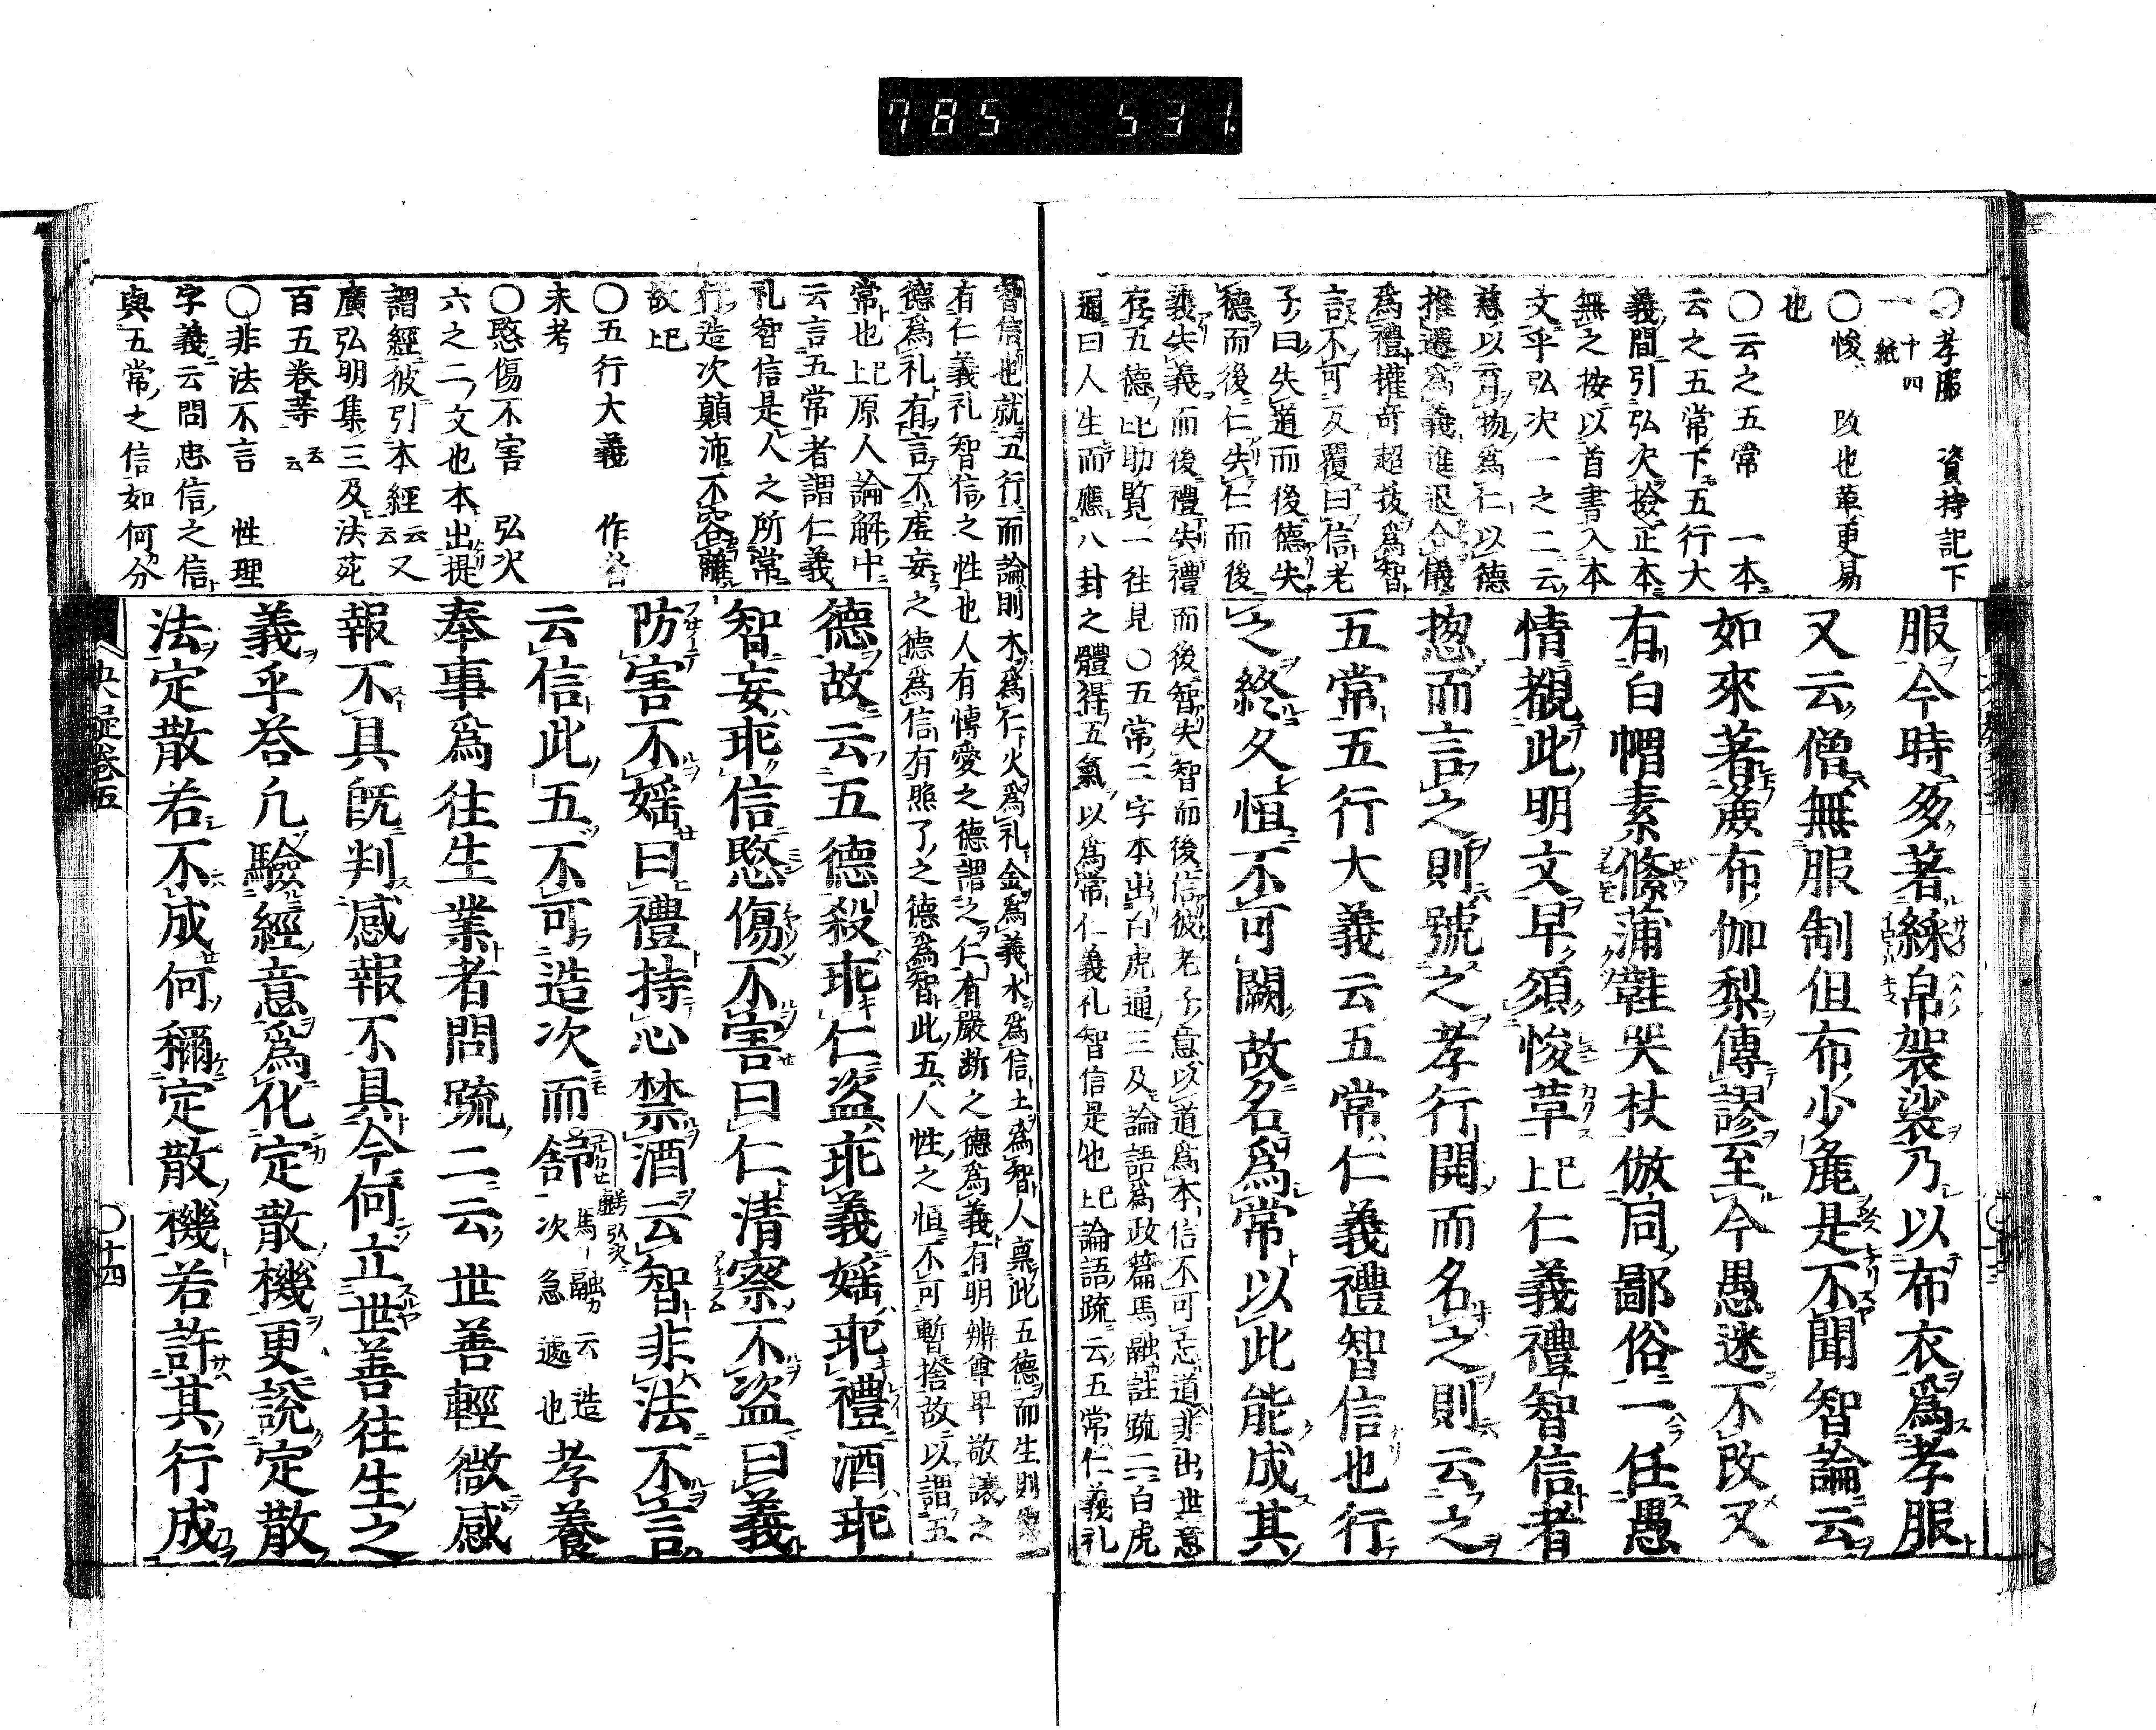 785 531.
〇孝服 資持記下
一 十四紙
〇悛 改也革更易
也
〇云之五常 一本
云之五常下五行大
義間引弘决撿正本
無之按以首書入本
文乎弘决一之二云
慈以育物爲仁以德
推遷爲義進退合儀
爲禮權奇超拔爲智
言不可反覆曰信老
子曰失道而後德失
德而後仁失仁而後
義失義而後禮失禮而後智失智而後信彼老子意以道爲本信不可忘道非出世意
在五德比助覽一往見〇五常二字本出白虎通三及論語爲政篇馬融註疏二白虎
通曰人生而應八卦之體得五氣以爲常仁義礼智信是也上已論語疏云五常仁義礼
服今時多著綵帛袈裟乃以布衣爲孝服
又云僧無服制但布少麁是不聞智論云
如來著麁布伽梨傳謬至今愚迷不改又
有白帽素絛蒲鞋哭杖倣同鄙俗一任愚
情覩此明文早須悛革上已仁義禮智信者
揔而言之則號之孝行開而名之則云之
五常五行大義云五常仁義禮智信也行
之終久恒不可闕故名爲常以此能成其
智信也就五行而論則木爲仁火爲礼金爲義水爲信土爲智人禀此五德而生則
有仁義礼智信之性也人有博愛之德謂之仁有嚴断之德爲義有明辨尊卑敬讓之
德爲礼有言不虚妄之德爲信有照了之德爲智此五人性之恒不可暫捨故以謂五
常也上已原人論解中
云言五常者謂仁義
礼智信是人之所常
行造次顛沛不容離
故上已
〇五行大義 作者
未考
〇愍傷不害 弘决
六之二文也本出提
謂經彼引本經云云又
廣弘明集三及法苑
百五卷等云云
〇非法不言 性理
字義云問忠信之信
與五常之信如何分
德故云五德殺乖仁盗乖義婬乖禮酒乖
智妄乖信愍傷不害曰仁清察不盗曰義
防害不婬曰禮持心禁酒云智非法不言
云信此五不可造次而舒馬融云造次急遽也孝養
奉事爲往生業者問䟽二云世善輕微感
報不具既判感報不具今何立世善往生之
義乎荅凡驗經意爲化定散機更說定散
法定散若不成何穪定散機若許其行成
决疑卷五
〇十四